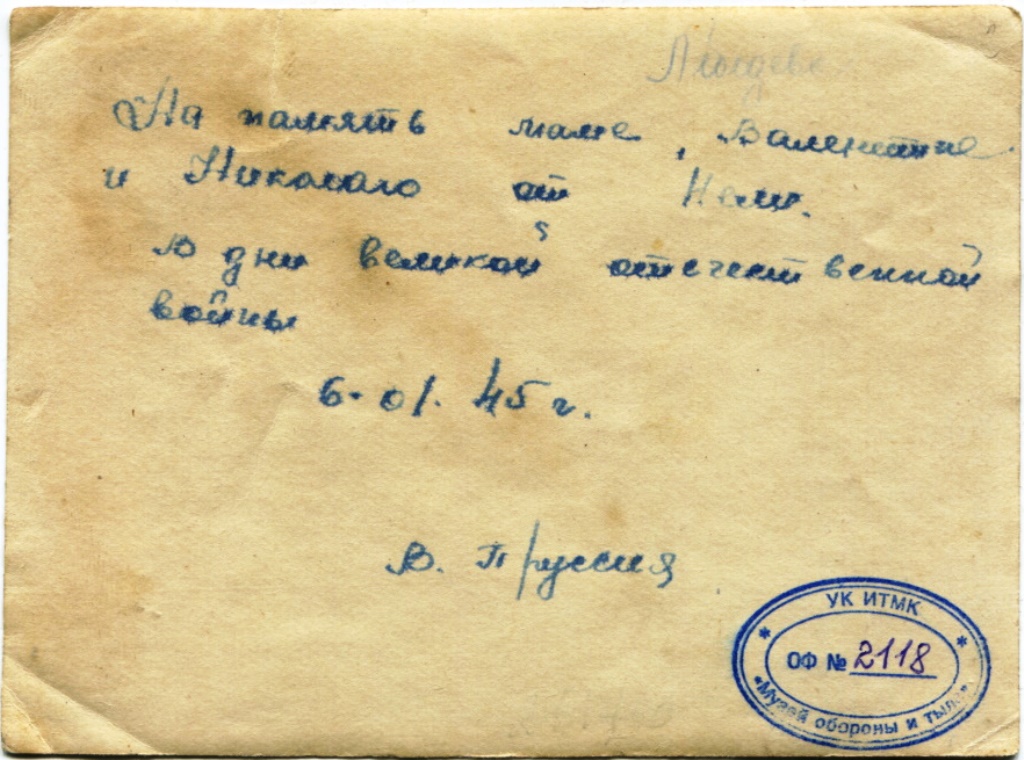 На память маме, Валентине
и Николаю от Нели.
В дни великой отечественной
войны
6. 01. 45 г.
В. Пруссия
УК ИТМК
ОФ № 2118
"Музей обороны и тыла"